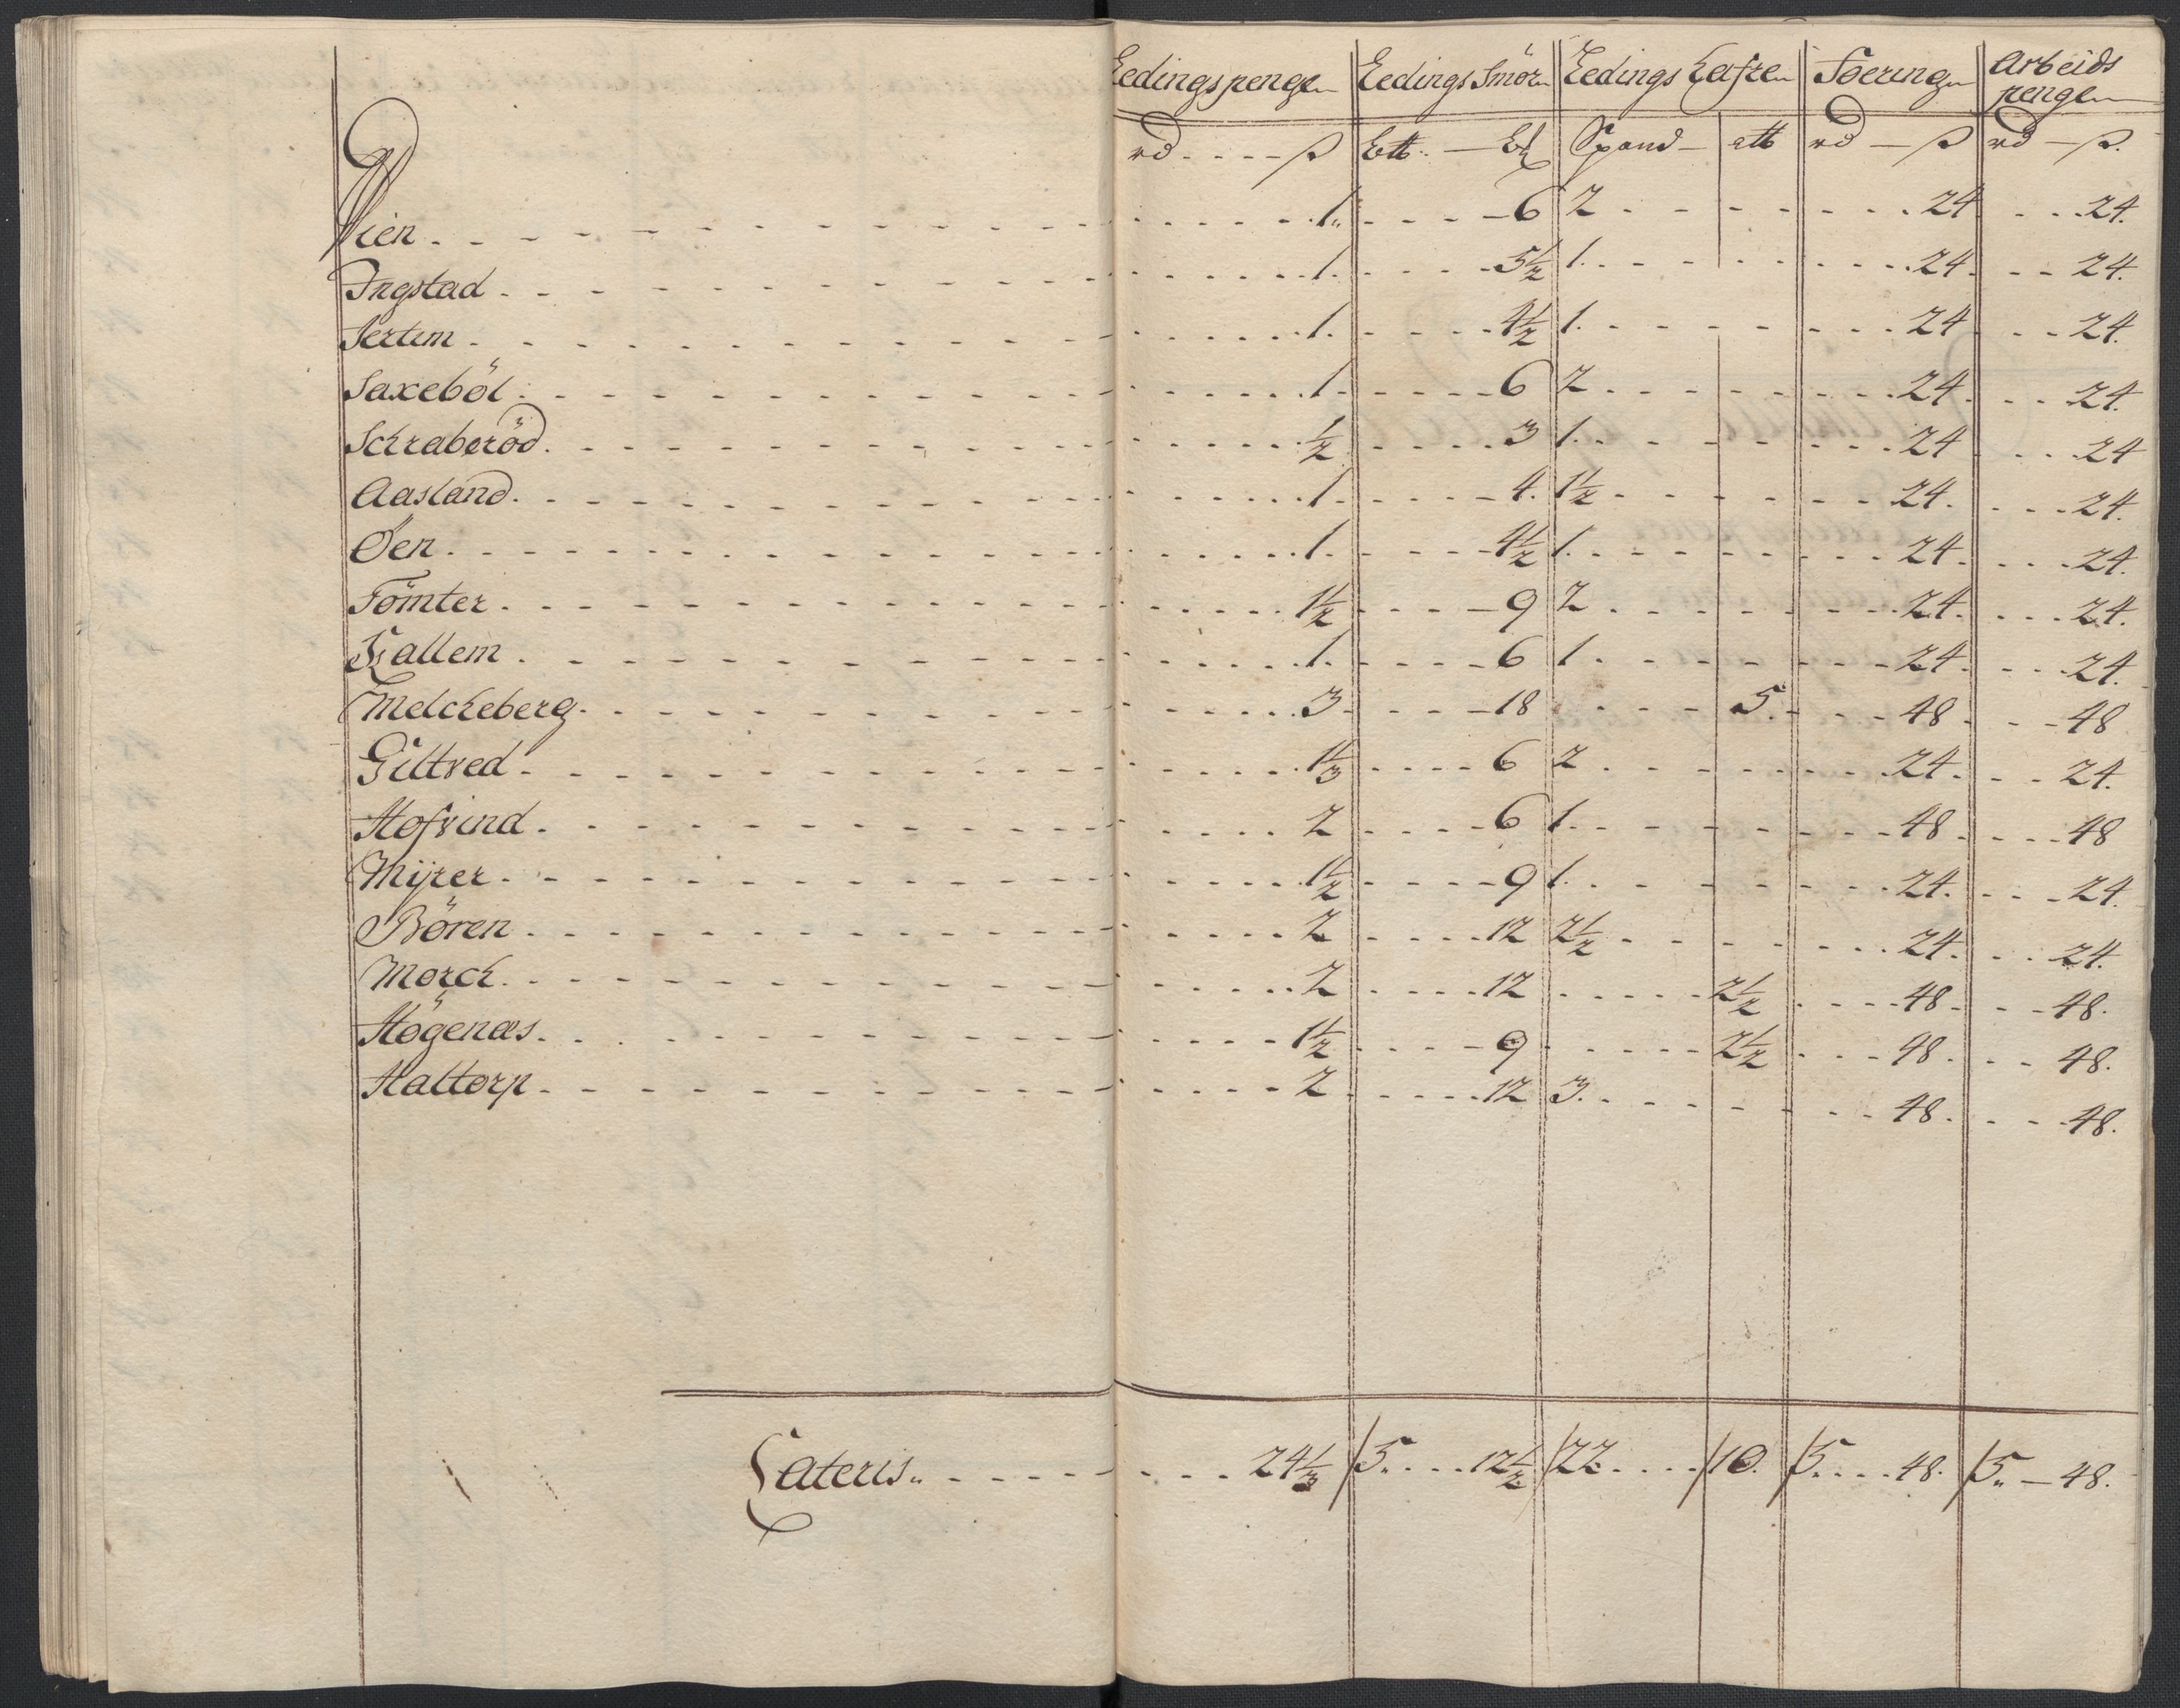 Ledingspenge Ledings Smör Ledings hafre Foering Arbeids penge
rd ß ℔ Spand rd ß rd ß
Vien 1 6 2 24 24.
Ingstad 1 5½ 1 24 24.
Sertem 1 4½ 1 24 24.
Saxeböl 1 6 2 24 24.
Schraberöd ½ 3 1 24 24
Aasland 1 4 1½ 24 24.
Öen 1 4½ 1 24 24.
Tömter 1½ 9 2 24 24.
Kallem 1 6 1 24 24.
Melcheberg 3 18 5 48 48
Giltved 1⅓ 6 2 24 24.
Hofvind 2 6 1 48 48
Mÿrer 1½ 9 1 24 24.
Bören 2 12 2½ 24 24.
Morch 2 12 2½ 48 48.
Högenæs 1½ 9 2½ 48 48.
Haltorp 2 12 3 48 48.
Lateris 24⅓ 5 12½ 22 10. 5 48. 5 48.